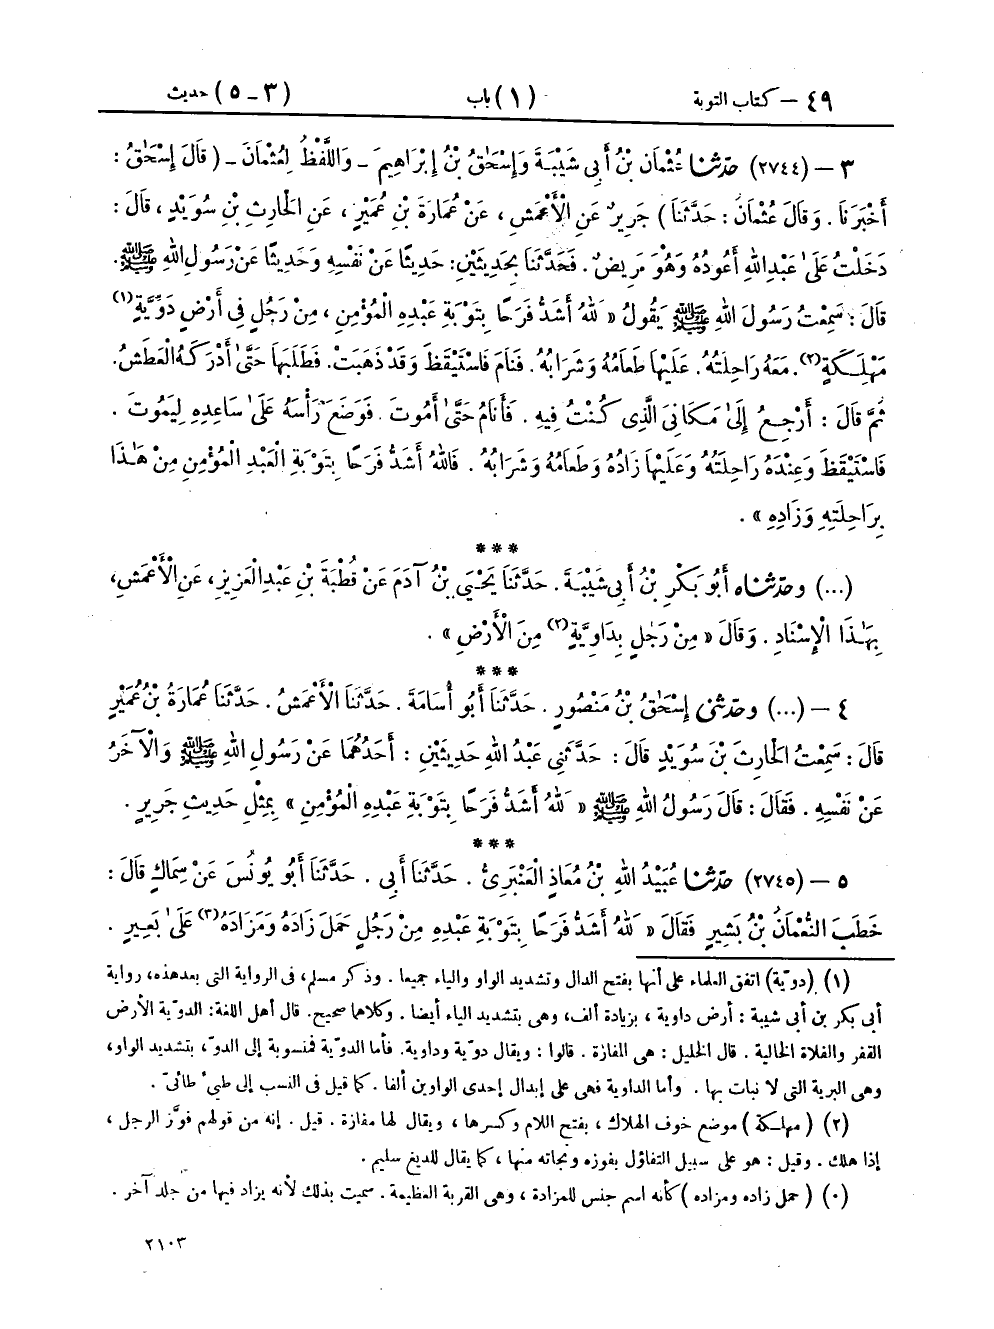 ٤٩ – كتاب التوبة (١) باب (٣ – ٥) حديث
٣ – (٢٧٤٤) حَدَّثَنَا عُثْمَانُ بْنُ أَبِي شَيْبَةَ وَإِسْحَٰقُ بْنُ إِبْرَاهِيمَ – وَاللَّفْظُ لِعُثْمَانَ – ( قَالَ إِسْحَٰقُ :
أَخْبَرَنَا . وَقَالَ عُثْمَانُ : حَدَّثَنَا ) جَرِيرٌ عَنِ الْأَعْمَشِ ، عَنْ عُمَارَةَ بْنِ عُمَيْرٍ ، عَنِ الْحَارِثِ بْنِ سُوَيْدٍ ، قَالَ :
دَخَلْتُ عَلَىٰ عَبْدِ اللهِ أَعُودُهُ وَهُوَ مَرِيضٌ . فَحَدَّثَنَا بِحَدِيثَيْنِ : حَدِيثًا عَنْ نَفْسِهِ وَحَدِيثًا عَنْ رَسُولِ اللهِ ﷺ .
قَالَ : سَمِعْتُ رَسُولَ اللهِ ﷺ يَقُولُ « لَلّٰهُ أَشَدُّ فَرَحًا بِتَوْبَةِ عَبْدِهِ الْمُؤْمِنِ ، مِنْ رَجُلٍ فِي أَرْضٍ دَوِّيَّةٍ (١)
مَهْلَكَةٍ (٢) . مَعَهُ رَاحِلَتُهُ . عَلَيْهَا طَعَامُهُ وَشَرَابُهُ . فَنَامَ فَاسْتَيْقَظَ وَقَدْ ذَهَبَتْ . فَطَلَبَهَا حَتَّىٰ أَدْرَكَهُ الْعَطَشُ .
ثُمَّ قَالَ : أَرْجِعُ إِلَىٰ مَكَانِيَ الَّذِي كُنْتُ فِيهِ . فَأَنَامُ حَتَّىٰ أَمُوتَ . فَوَضَعَ رَأْسَهُ عَلَىٰ سَاعِدِهِ لِيَمُوتَ .
فَاسْتَيْقَظَ وَعِنْدَهُ رَاحِلَتُهُ وَعَلَيْهَا زَادُهُ وَطَعَامُهُ وَشَرَابُهُ . فَاللهُ أَشَدُّ فَرَحًا بِتَوْبَةِ الْعَبْدِ الْمُؤْمِنِ مِنْ هَٰذَا
بِرَاحِلَتِهِ وَزَادِهِ » .
***
(...) وَحَدَّثَنَاهُ أَبُو بَكْرِ بْنُ أَبِي شَيْبَةَ . حَدَّثَنَا يَحْيَىٰ بْنُ آدَمَ عَنْ قُطْبَةَ بْنِ عَبْدِ الْعَزِيزِ ، عَنِ الْأَعْمَشِ ،
بِهَٰذَا الْإِسْنَادِ . وَقَالَ « مِنْ رَجُلٍ بِدَاوِيَّةٍ (٢) مِنَ الْأَرْضِ » .
***
٤ – (...) وَحَدَّثَنِي إِسْحَٰقُ بْنُ مَنْصُورٍ . حَدَّثَنَا أَبُو أُسَامَةَ . حَدَّثَنَا الْأَعْمَشُ . حَدَّثَنَا عُمَارَةُ بْنُ عُمَيْرٍ
قَالَ : سَمِعْتُ الْحَارِثَ بْنَ سُوَيْدٍ قَالَ : حَدَّثَنِي عَبْدُ اللهِ حَدِيثَيْنِ : أَحَدُهُمَا عَنْ رَسُولِ اللهِ ﷺ وَالْآخَرُ
عَنْ نَفْسِهِ . فَقَالَ : قَالَ رَسُولُ اللهِ ﷺ « لَلّٰهُ أَشَدُّ فَرَحًا بِتَوْبَةِ عَبْدِهِ الْمُؤْمِنِ » بِمِثْلِ حَدِيثِ جَرِيرٍ .
***
٥ – (٢٧٤٥) حَدَّثَنَا عُبَيْدُ اللهِ بْنُ مُعَاذٍ الْعَنْبَرِيُّ . حَدَّثَنَا أَبِي . حَدَّثَنَا أَبُو يُونُسَ عَنْ سِمَاكٍ قَالَ :
خَطَبَ النُّعْمَانُ بْنُ بَشِيرٍ فَقَالَ « لَلّٰهُ أَشَدُّ فَرَحًا بِتَوْبَةِ عَبْدِهِ مِنْ رَجُلٍ حَمَلَ زَادَهُ وَمَزَادَهُ (٣) عَلَىٰ بَعِيرٍ .
(١) (دوّية) اتفق العلماء على أنها بفتح الدال وتشديد الواو والياء جميعا . وذكر مسلم ، في الرواية التي بعد هذه ، رواية
أبي بكر بن أبي شيبة : أرض داوية ، بزيادة ألف ، وهي بتشديد الياء أيضا . وكلاهما صحيح . قال أهل اللغة : الدوّية الأرض
القفر والفلاة الخالية . قال الخليل : هي المفازة . قالوا : ويقال دوّية وداوية . فأما الدوّية فمنسوبة إلى الدوّ ، بتشديد الواو ،
وهي البرية التي لا نبات بها . وأما الداوية فهي على إبدال إحدى الواوين ألفا . كما قيل في النسب إلى طيئ طائيّ .
(٢) (مهلكة) موضع خوف الهلاك ، بفتح اللام وكسرها ، ويقال لها مفازة . قيل . إنه من قولهم فوَّز الرجل ،
إذا هلك . وقيل : هو على سبيل التفاؤل بفوزه ونجاته منها ، كما يقال للديغ سليم .
(٠) (حمل زاده ومزاده) كأنه اسم جنس للمزادة ، وهي القربة العظيمة . سميت بذلك لأنه يزاد فيها من جلد آخر .
٢١٠٣